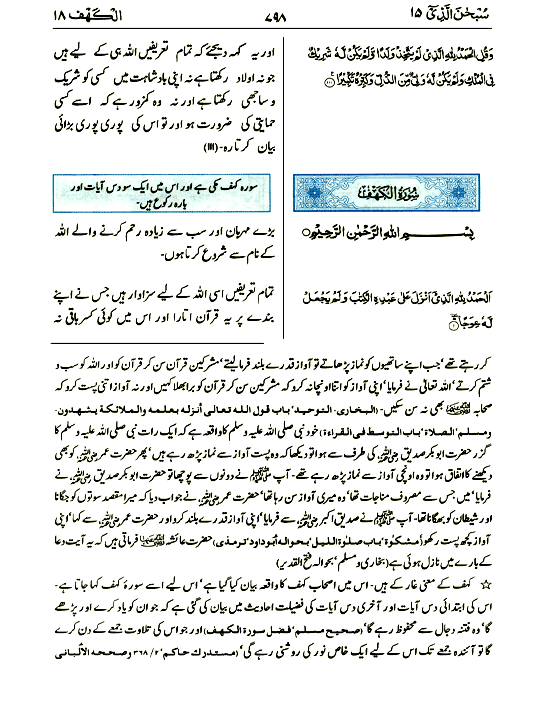 سُبْحٰنَ الَّذِىْٓ ۱۵
۷۹۸
الْكَهْف ۱۸
وَقُلِ الْحَمْدُ لِلّٰهِ الَّذِىْ لَمْ يَتَّخِذْ وَلَدًا وَّلَمْ يَكُنْ لَّهٗ شَرِيْكٌ
فِى الْمُلْكِ وَلَمْ يَكُنْ لَّهٗ وَلِىٌّ مِّنَ الذُّلِّ وَكَبِّرْهُ تَكْبِيْرًا
اور یہ کہہ دیجئے کہ تمام تعریفیں اللہ ہی کے لیے ہیں
جو نہ اولاد رکھتا ہے نہ اپنی بادشاہت میں کسی کو شریک
و ساجھی رکھتا ہے اور نہ وہ کمزور ہے کہ اسے کسی
حمایتی کی ضرورت ہو اور تو اس کی پوری پوری بڑائی
بیان کرتا رہ۔ (۱۱۱)
سُوْرَةُ الْكَهْفِ
سورہ کہف مکی ہے اور اس میں ایک سو دس آیات اور
بارہ رکوع ہیں۔
بِسْمِ اللّٰهِ الرَّحْمٰنِ الرَّحِيْمِ
بڑے مہربان اور سب سے زیادہ رحم کرنے والے اللہ
کے نام سے شروع کرتا ہوں۔
اَلْحَمْدُ لِلّٰهِ الَّذِىْٓ اَنْزَلَ عَلٰى عَبْدِهِ الْكِتٰبَ وَلَمْ يَجْعَلْ
لَّهٗ عِوَجًا
تمام تعریفیں اسی اللہ کے لیے سزاوار ہیں جس نے اپنے
بندے پر یہ قرآن اتارا اور اس میں کوئی کسر باقی نہ
کر رہے تھے‘ جب اپنے ساتھیوں کو نماز پڑھاتے تو آواز قدرے بلند فرما لیتے‘ مشرکین قرآن سن کر قرآن کو اور اللہ کو سب و
شتم کرتے‘ اللہ تعالیٰ نے فرمایا‘ اپنی آواز کو اتنا اونچا نہ کرو کہ مشرکین سن کر قرآن کو برا بھلا کہیں اور نہ آواز اتنی پست کرو کہ
صحابہ رضی اللہ عنہم بھی نہ سن سکیں۔ (البخاری، التوحید‘ باب قول اللہ تعالی أنزله بعلمه والملائكة يشهدون۔
ومسلم‘ الصلاة‘ باب التوسط فی القراءة) خود نبی صلی اللہ علیہ وسلم کا واقعہ ہے کہ ایک رات نبی صلی اللہ علیہ وسلم کا
گزر حضرت ابوبکر صدیق رضی اللہ عنہ کی طرف سے ہوا تو دیکھا کہ وہ پست آواز سے نماز پڑھ رہے ہیں‘ پھر حضرت عمر رضی اللہ عنہ کو بھی
دیکھنے کا اتفاق ہوا تو وہ اونچی آواز سے نماز پڑھ رہے تھے۔ آپ ﷺ نے دونوں سے پوچھا تو حضرت ابوبکر صدیق رضی اللہ عنہ نے
فرمایا‘ میں جس سے مصروف مناجات تھا‘ وہ میری آواز سن رہا تھا‘ حضرت عمر رضی اللہ عنہ نے جواب دیا کہ میرا مقصد سوتوں کو جگانا
اور شیطان کو بھگانا تھا۔ آپ ﷺ نے صدیق اکبر رضی اللہ عنہ سے فرمایا‘ اپنی آواز قدرے بلند کرو اور حضرت عمر رضی اللہ عنہ سے کہا‘ اپنی
آواز کچھ پست رکھو (مشکوة‘ باب صلوة اللیل‘ بحوالہ أبو داود‘ ترمذی) حضرت عائشہ رضی اللہ عنہا فرماتی ہیں کہ یہ آیت دعا
کے بارے میں نازل ہوئی ہے (بخاری و مسلم‘ بحوالہ فتح القدیر)
☆ کہف کے معنی غار کے ہیں۔ اس میں اصحاب کہف کا واقعہ بیان کیا گیا ہے‘ اس لیے اسے سورۂ کہف کہا جاتا ہے۔
اس کی ابتدائی دس آیات اور آخری دس آیات کی فضیلت احادیث میں بیان کی گئی ہے کہ جو ان کو یاد کرے اور پڑھے
گا‘ وہ فتنۂ دجال سے محفوظ رہے گا‘ (صحیح مسلم‘ فضل سورة الکهف) اور جو اس کی تلاوت جمعے کے دن کرے
گا تو آئندہ جمعے تک اس کے لیے ایک خاص نور کی روشنی رہے گی‘ (مستدرک حاکم‘ ۲/ ۳۶۸ وصححه الألبانی